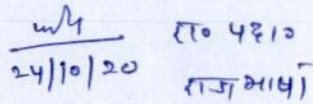 24/10/20
रा० पदा०
राजभाषा